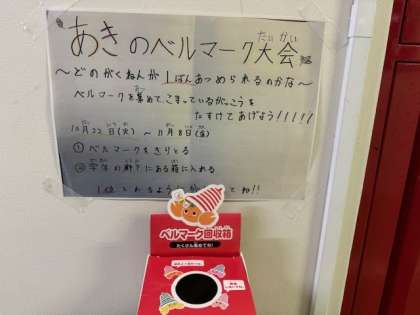 あきのベルマーク大会
たいかい
〜どのがくねんが1ばんあつめられるのかな〜
ベルマークを集めて、こまっているがっこうを
たすけてあげよう!!!!!
10月22日(火)〜11月8日(金)
①ベルマークをきりとる
にある箱に入れる
ベルマーク回収箱
たくさん集めてね!